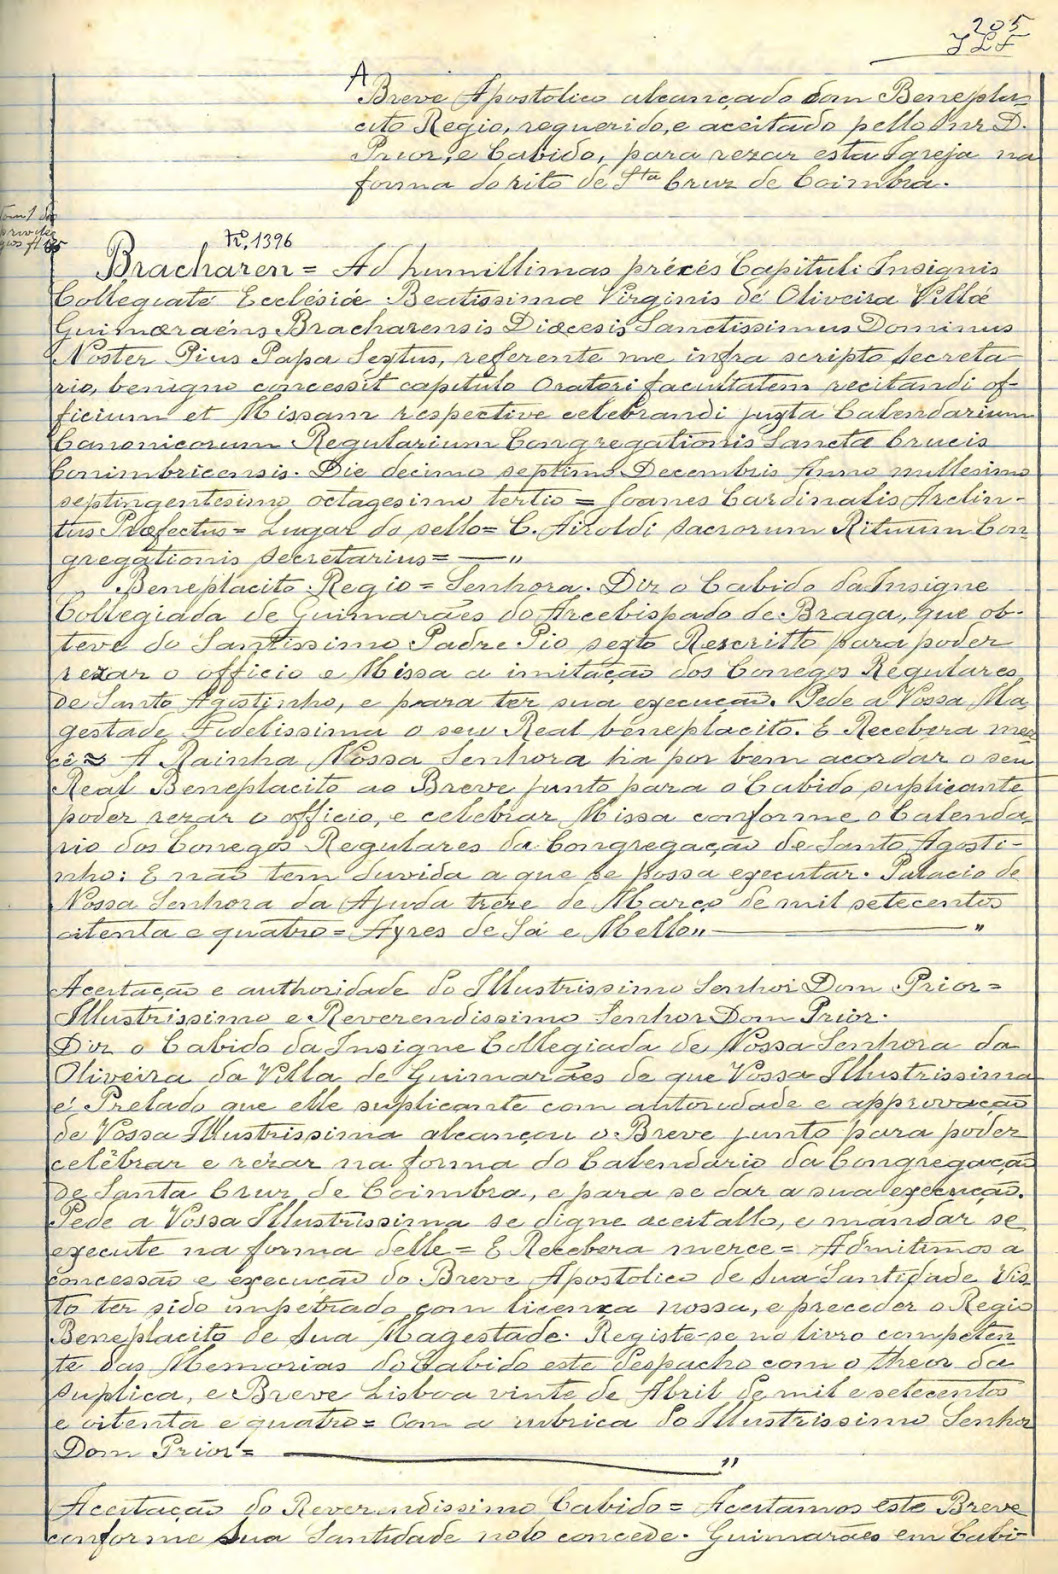 205
A
Breve Apostolico alcançado com Benepla-
cito Regio, requerido, e aceitado pello Snr D.
Prior, e Cabido, para rezar esta Igreja na
forma do rito de Sta Cruz de Coimbra.
Nº 1396
Bracharen = Ad humillimas précés Capituli Insignis
Collegiaté Ecclésiæ Beatissimæ Virginis de Oliveira Villæ
Guimaraéns Bracharensis Diœcesis Sanctissimus Dominus
Noster Pius Papa Sextus, referente me infra scripto Secreta-
rio, benigne concessit capitulo Oratori facultatem recitandi of-
ficium et Missam respective celebrandi juxta Calendarium
Canonicorum Regularium Congregationis Sanctæ Crucis
Conimbricensis. Die decimo septimo Decembris Anno millesimo
septingentesimo octagesimo tertio = Joanes Cardinalis Archin-
tus Præfectus = Lugar do sello = C. Airoldi Sacrorum Rituum Con-
gregationis Secretarius = — "
Beneplacito Regio = Senhora. Diz o Cabido da Insigne
Collegiada de Guimarães do Arcebispado de Braga, que ob-
teve do Santissimo Padre Pio sexto Rescritto para poder
rezar o officio e Missa a imitação dos Conegos Regulares
de Santo Agostinho, e para ter sua execução. Pede a Vossa Ma
gestade Fidelissima o seu Real beneplacito. E Recebera mer-
cê = A Rainha Nossa Senhora ha por bem acordar o seu
Real Beneplacito ao Breve junto para o Cabido suplicante
poder rezar o officio, e celebrar Missa conforme o Calenda-
rio dos Conegos Regulares da Congregação de Santo Agosti-
nho: E não tem duvida a que se possa executar. Palacio de
Nossa Senhora da Ajuda treze de Março de mil setecentos
oitenta e quatro = Ayres de Sá e Mello,, — "
Aceitação e authoridade do Illustrissimo Senhor Dom Prior =
Illustrissimo e Reverendissimo Senhor Dom Prior.
Diz o Cabido da Insigne Collegiada de Nossa Senhora da
Oliveira da Villa de Guimarães de que Vossa Illustrissima
é Prelado que elle suplicante com autoridade e approvação
de Vossa Illustrissima alcançou o Breve junto para poder
celébrar e rézar na forma do Calendario da Congregação
de Santa Cruz de Coimbra, e para se dar a sua execução.
Pede a Vossa Illustrissima se digne aceitallo, e mandar se
execute na forma delle = E Recebera merce = Admitimos a
concessão e execução do Breve Apostolico de Sua Santidade Vis-
to ter sido impetrado com licença nossa, e preceder o Regio
Beneplacito de Sua Magestade. Registe-se no livro competen
te das Memorias do Cabido este despacho com o theor da
suplica, e Breve Lisboa vinte de Abril de mil e setecentos
e oitenta e quatro = Com a rubrica do Illustrissimo Senhor
Dom Prior = — "
Aceitação do Reverendissimo Cabido = Aceitamos este Breve
conforme Sua Santidade nolo concede. Guimarães em Cabi-